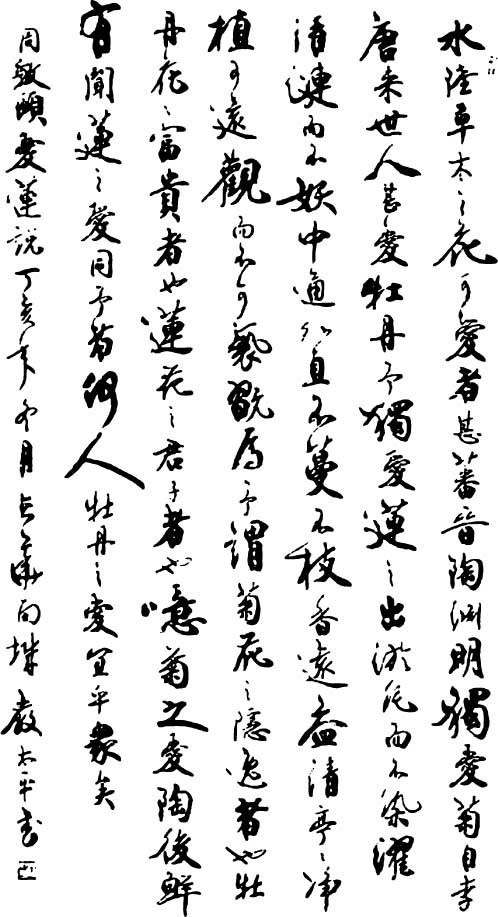 水陸草木之花可愛者甚蕃晉陶渊明獨愛菊自李
唐来世人甚愛牡丹予獨愛蓮之出淤泥而不染濯
清漣而不妖中通外直不蔓不枝香遠益清亭〻净
植可遠觀而不可褻翫焉予謂菊花之隱逸者也牡
丹花之富貴者也蓮花之君子者也噫菊之愛陶後鮮
有聞蓮之愛同予者何人牡丹之愛宜乎衆矣
周敦頤愛蓮説丁亥年冬月太平書